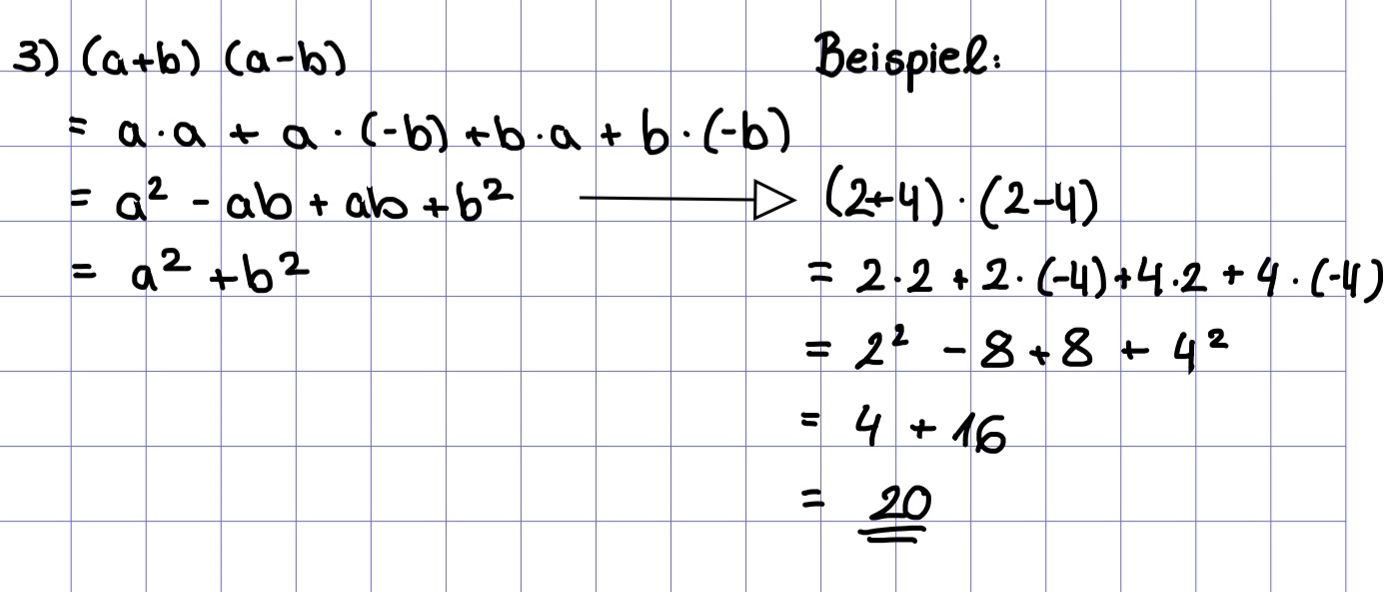 3) (a+b) (a-b)
= a·a + a·(-b) +b·a + b·(-b)
= a² - ab + ab +b²
= a² +b²
Beispiel:
(2+4)·(2-4)
= 2·2 + 2·(-4)+4·2 + 4·(-4)
= 2² - 8 + 8 + 4²
= 4 + 16
= 20